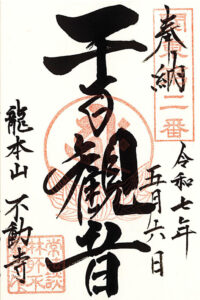 奉納
二番
令和七年
五月六日
千手観音
龍本山 不動寺